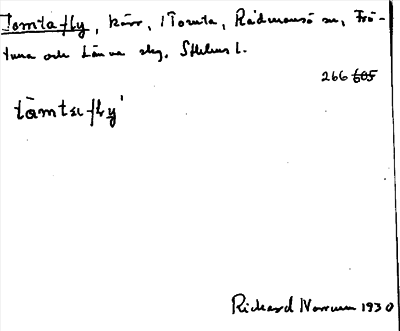 Tomta fly, kärr, i Tomta, Rådmansö sn, Frö-
tuna och Länna skg, Sthlms l.
266 605
tòmtafly'
Rickard Norrman 1930